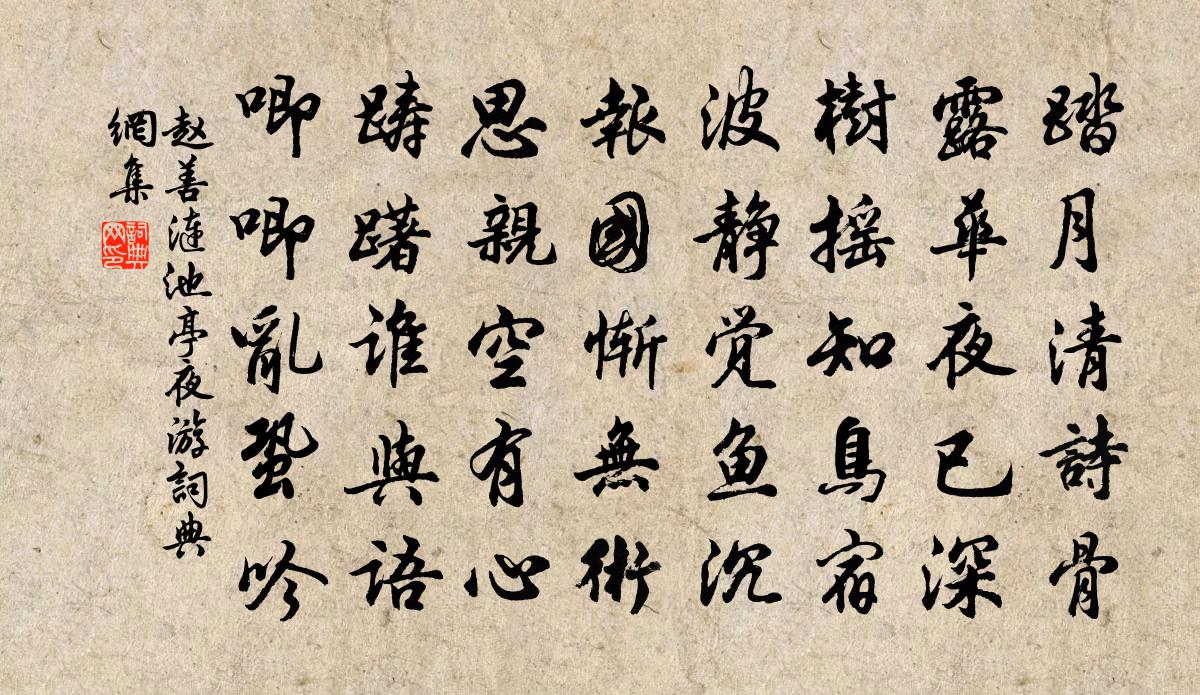 踏月清詩骨
露華夜已深
樹摇知鳥宿
波静覺魚沉
報國慚無術
思親空有心
躊躇谁與語
唧唧亂蛩吟
赵善漣池亭夜游詞典
網集
詞典
网印